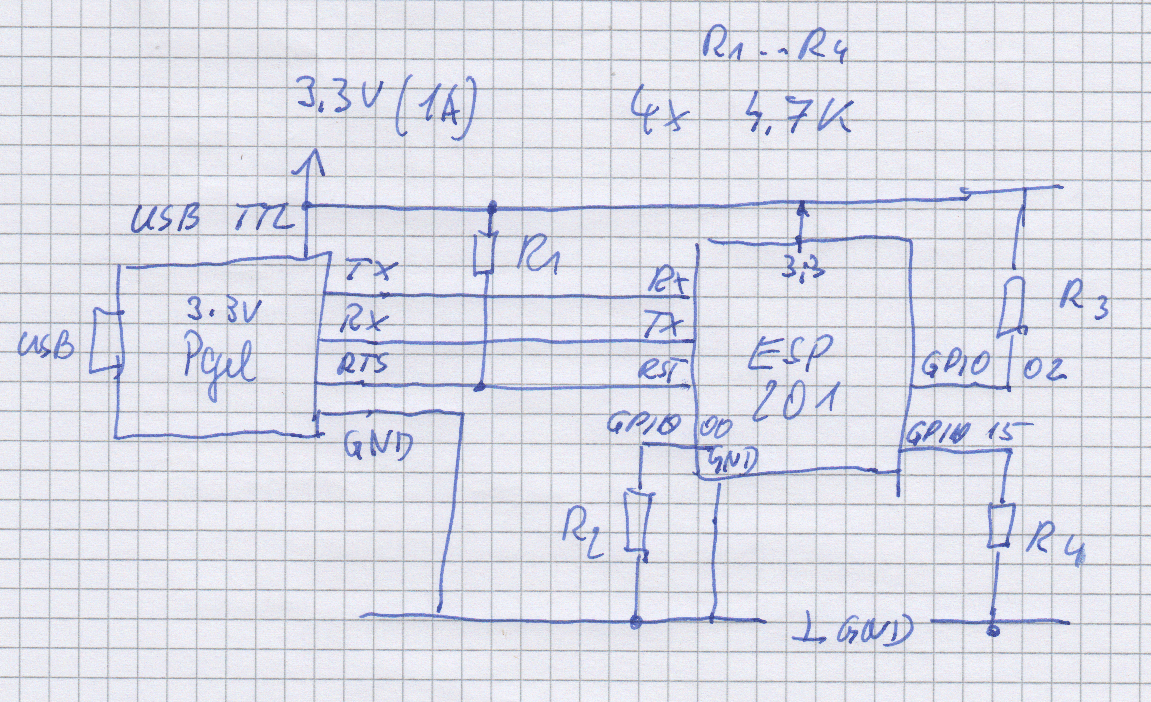 R1 ... R4
3.3V (1A)
4x 4,7K
USB TTL
R1
3,3
TX
Rx
3.3V
Pgel
USB
RX
TX
ESP
201
R3
RTS
RST
GPIO 02
GPIO 00
GPIO 15
GND
GND
R2
R4
⊥ GND